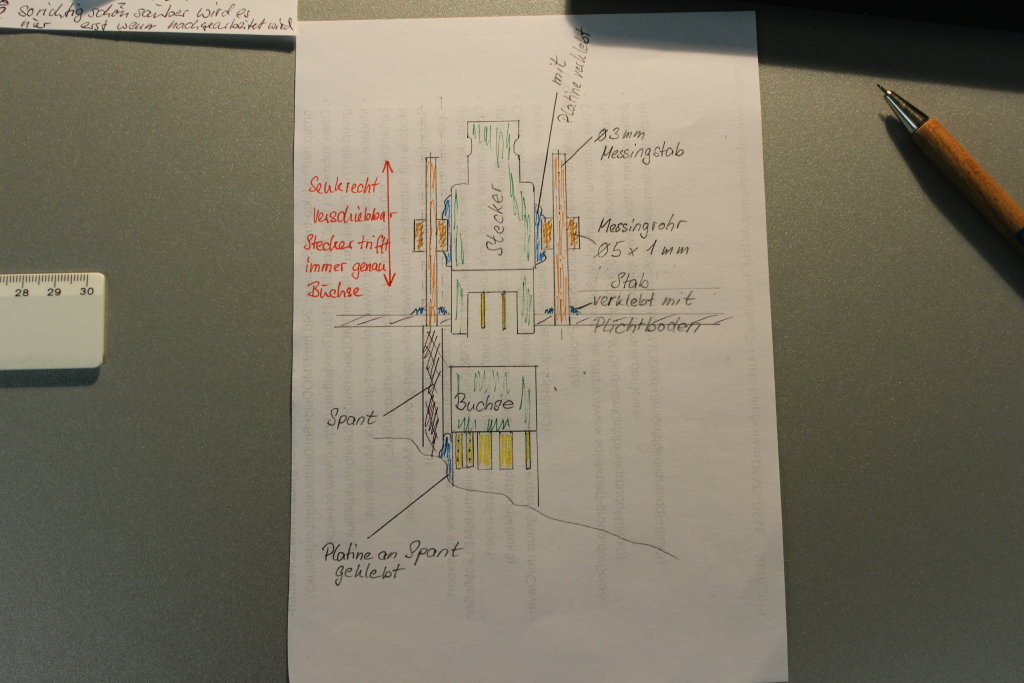 so richtig schön sauber wird es
nur erst wenn nachgearbeitet wird
mit
Platine verklebt
Ø3mm
Messingstab
Stecker
Senkrecht
verschiebbar
Stecker trifft
immer genau
Buchse
Messingrohr
Ø5 x 1 mm
Stab
verklebt mit
Plichtboden
Buchse
Spant
Platine an Spant
geklebt
28 29 30